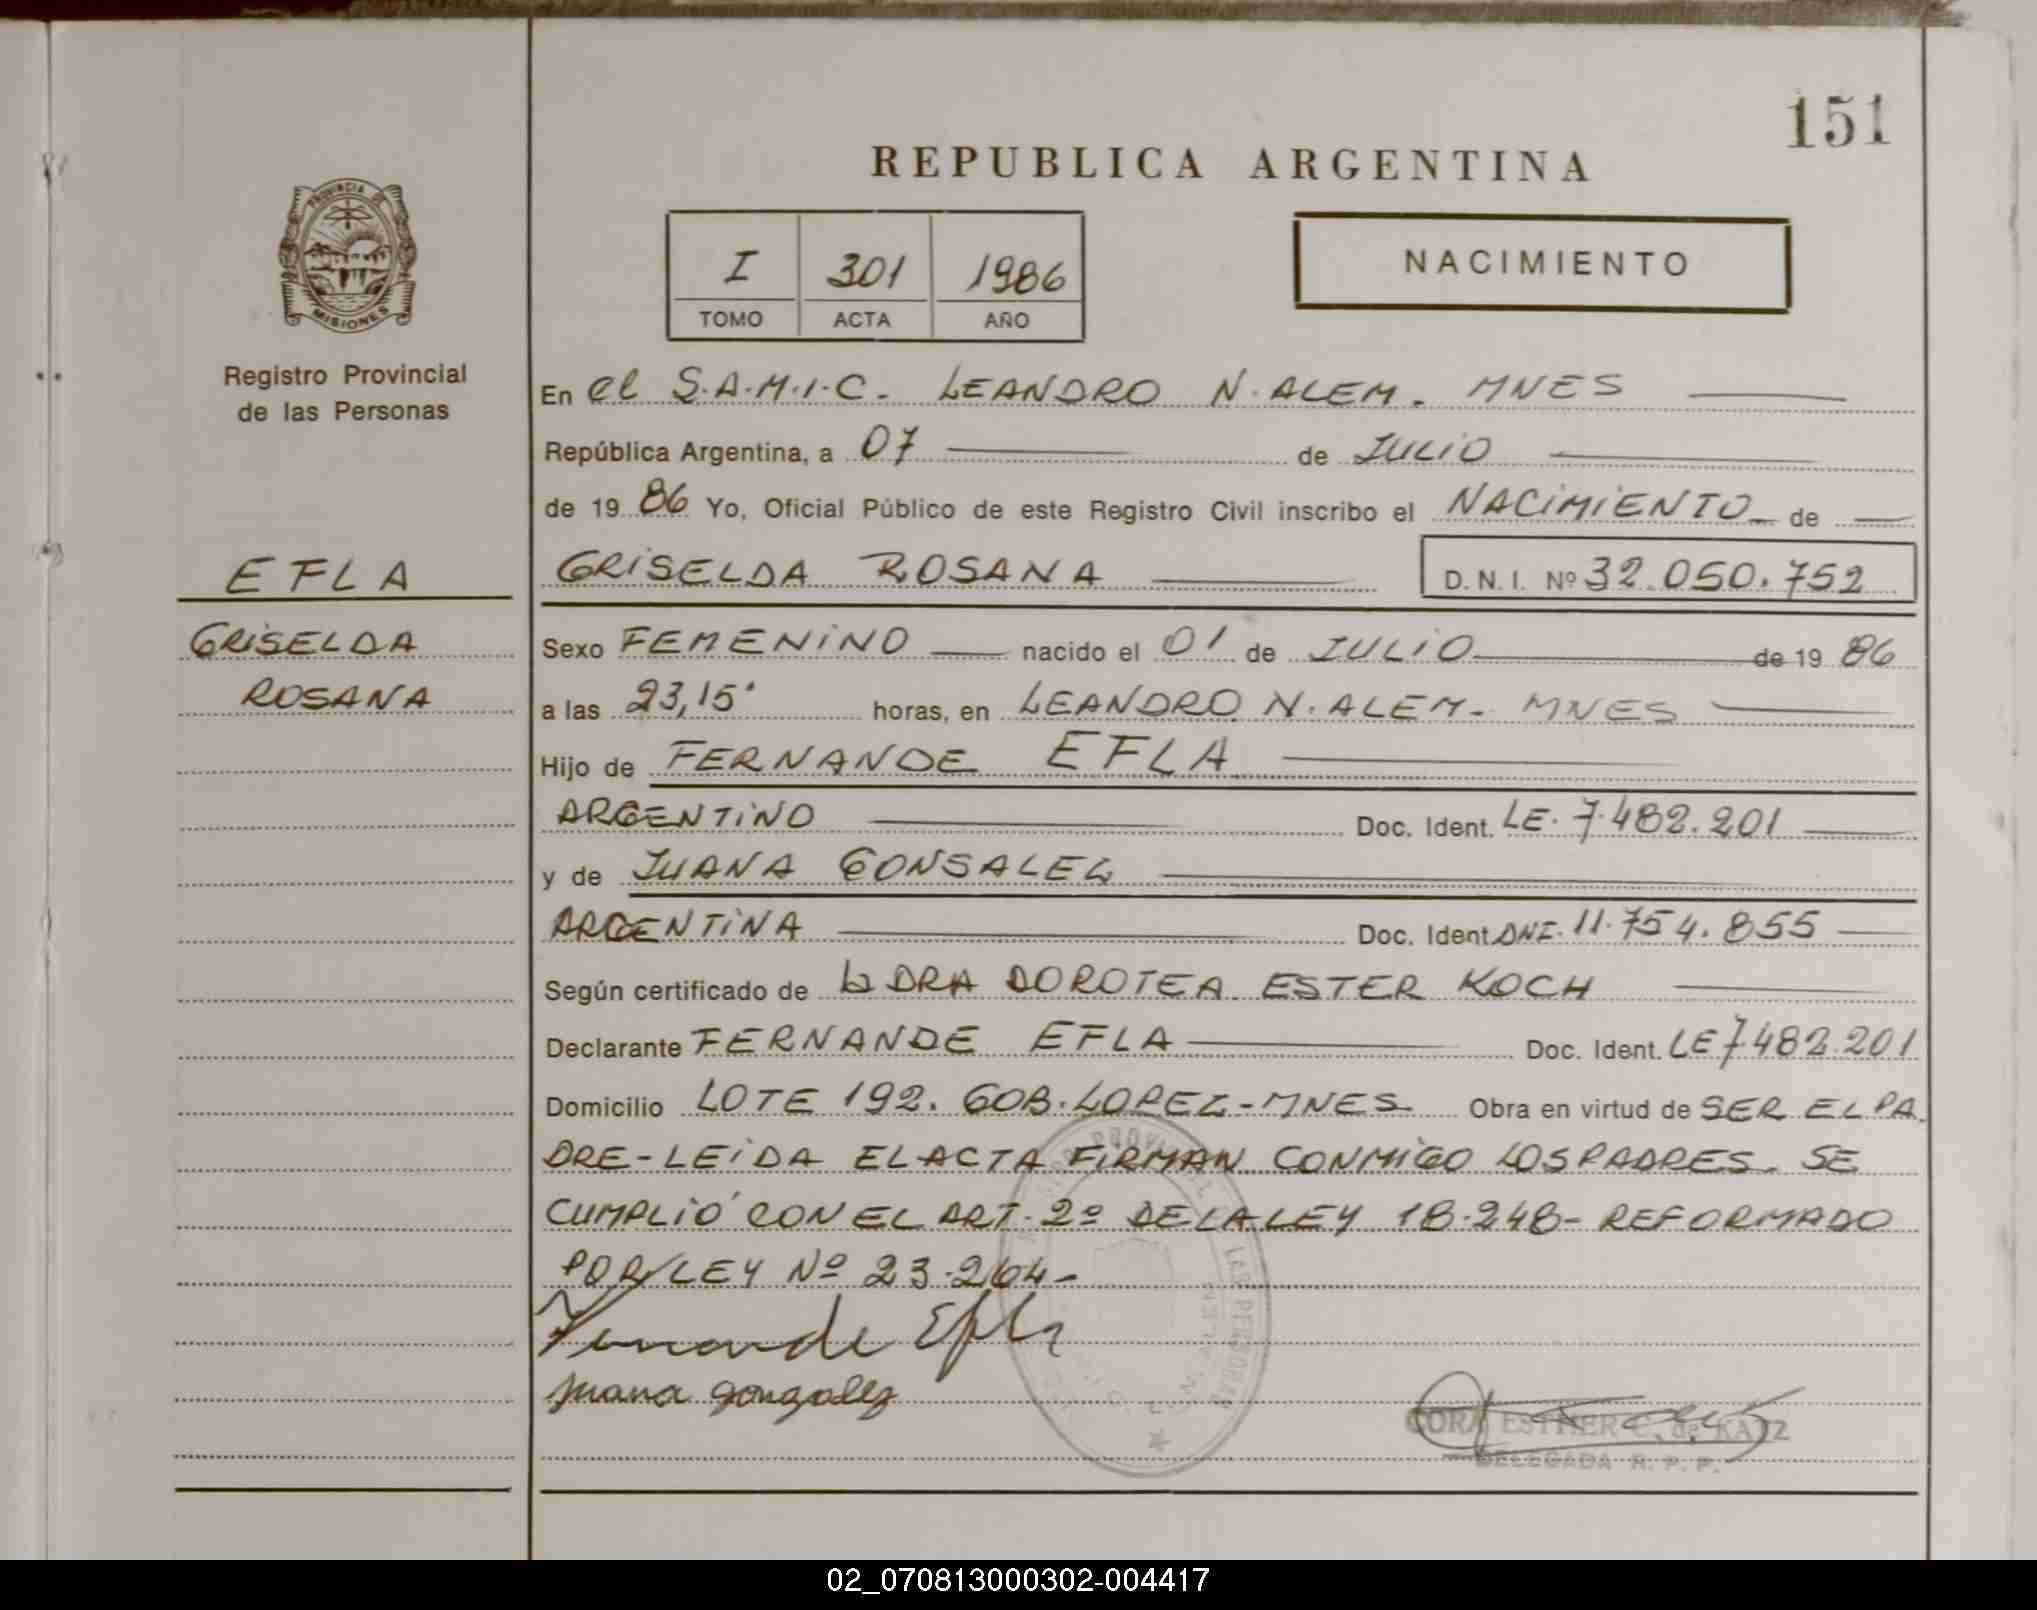 151
REPUBLICA ARGENTINA
PROVINCIA DE
MISIONES
I 301 1986
TOMO ACTA AÑO
NACIMIENTO
Registro Provincial
de las Personas
En el S.A.M.I.C. LEANDRO N. ALEM. MNES
República Argentina, a 07 de JULIO
de 19 86 Yo, Oficial Público de este Registro Civil inscribo el NACIMIENTO de
EFLA
GRISELDA ROSANA D. N. I. Nº 32.050.752
GRISELDA
ROSANA
Sexo FEMENINO nacido el 01 de JULIO de 19 86
a las 23,15' horas, en LEANDRO N. ALEM. MNES
Hijo de FERNANDE EFLA
ARGENTINO Doc. Ident. LE. 7.482.201
y de JUANA GONSALEZ
ARGENTINA Doc. Ident DNI. 11.754.855
Según certificado de la DRA DOROTEA ESTER KOCH
Declarante FERNANDE EFLA Doc. Ident. LE 7.482.201
Domicilio LOTE 192. GOB. LOPEZ-MNES Obra en virtud de SER EL PA
DRE-LEIDA EL ACTA FIRMAN CONMIGO LOS PADRES. SE
CUMPLIÓ CON EL ART. 2º DE LA LEY 18.248- REFORMADO
POR LEY Nº 23.264-
Fernande Efla
Juana gonzalez
CORA ESTHER C. de KATZ
DELEGADA R. P. P.
02_070813000302-004417